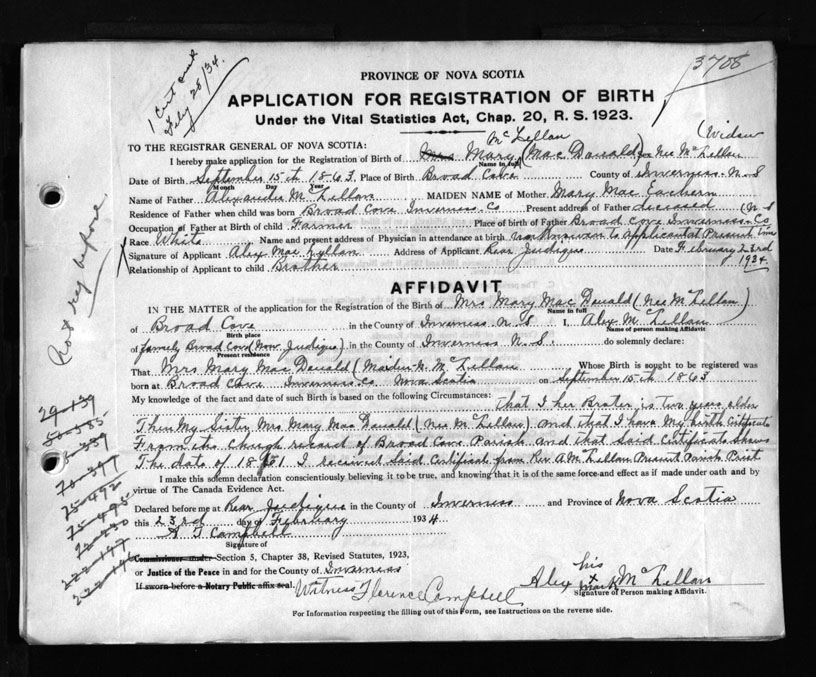 1 Cert out
Feby 28/34.
3708
PROVINCE OF NOVA SCOTIA
APPLICATION FOR REGISTRATION OF BIRTH
Under the Vital Statistics Act, Chap. 20, R. S. 1923.
TO THE REGISTRAR GENERAL OF NOVA SCOTIA:
McLellan
(Widow
I hereby make application for the Registration of Birth of Mrs Mary (MacDonald) nee McLellan
Name in full
Date of Birth September 15th 1863 Place of Birth Broad Cove County of Inverness N.S
Month Day Year
Name of Father Alexander McLellan MAIDEN NAME of Mother Mary MacEachern
Residence of Father when child was born Broad Cove Inverness Co Present address of Father deceased
Occupation of Father at Birth of Child Farmer Place of birth of Father Broad Cove Inverness Co N S
Race White Name and present address of Physician in attendance at birth not Known to Applicant at Present time
X Signature of Applicant Alex MacLellan Address of Applicant Rear Judique Date February 23rd
1934
Relationship of Applicant to child Brother
AFFIDAVIT
IN THE MATTER of the application for the Registration of the Birth of Mrs Mary MacDonald (Nee McLellan)
Name in full
of Broad Cove in the County of Inverness N S I, Alex McLellan
Birth place Name of person making Affidavit
of (formerly Broad Cove) Now Judique) in the County of Inverness N. S. do solemnly declare:
Present residence
That Mrs Mary MacDonald (Maiden N. McLellan Whose Birth is sought to be registered was
born at Broad Cove Inverness Co Nova Scotia on September 15th 1863
My knowledge of the fact and date of such Birth is based on the following Circumstances: That I her Broter is Two years older
Then My Sister Mrs Mary MacDonald (Nee McLellan) and that I have My birth Certificate
From the Church record of Broad Cove Parish and that Said Certificate Shows
The date of 1861 I received Said Certificat from Rev A. M. Lellan Present Parish Prist
I make this solemn declaration conscientiously believing it to be true, and knowing that it is of the same force and effect as if made under oath and by
virtue of The Canada Evidence Act.
Declared before me at Rear Judique in the County of Inverness and Province of Nova Scotia
this 23rd day of February 1934
A J Campbell
Signature of
Commissioner under Section 5, Chapter 38, Revised Statutes, 1923,
or Justice of the Peace in and for the County of Inverness
If sworn before a Notary Public affix seal.
Witness Florence Campbell
his
Alex X McLellan
mark
Signature of Person making Affidavit.
For Information respecting the filling out of this Form, see Instructions on the reverse side.
Not reg before
29-139
75-492
75-495
222-197